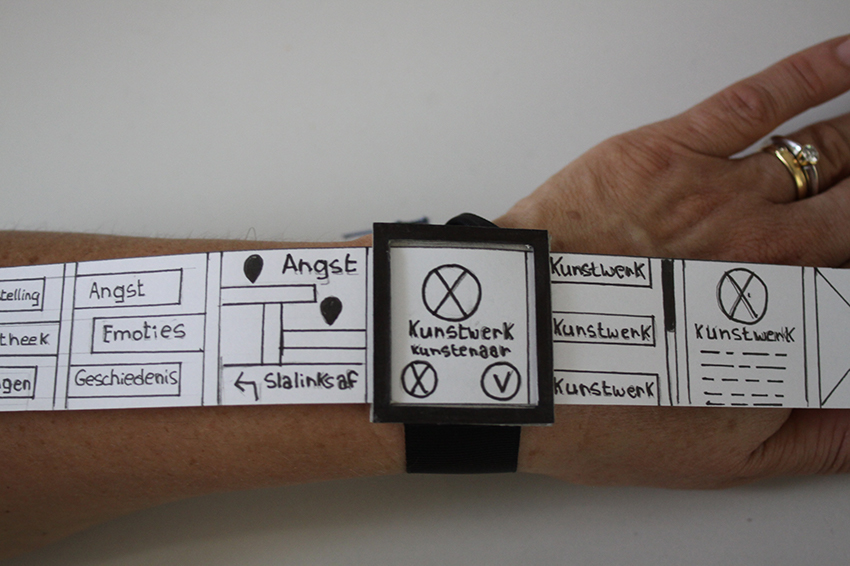 telling
theek
gen
Angst
Emoties
Geschiedenis
Angst
Sla links af
Kunstwerk
kunstenaar
X
V
Kunstwerk
Kunstwerk
Kunstwerk
Kunstwerk